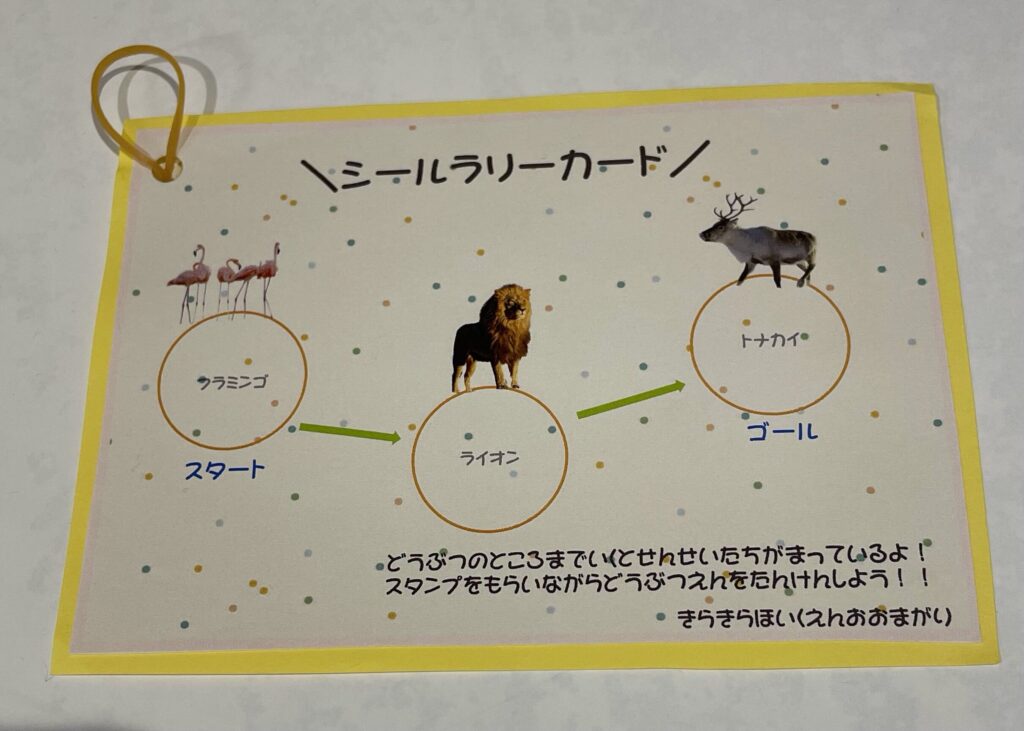 ＼シールラリーカード／
フラミンゴ
ライオン
トナカイ
スタート
ゴール
どうぶつのところまでいくとせんせいたちがまっているよ！
スタンプをもらいながらどうぶつえんをたんけんしよう！！
きらきらほいくえんおおまがり